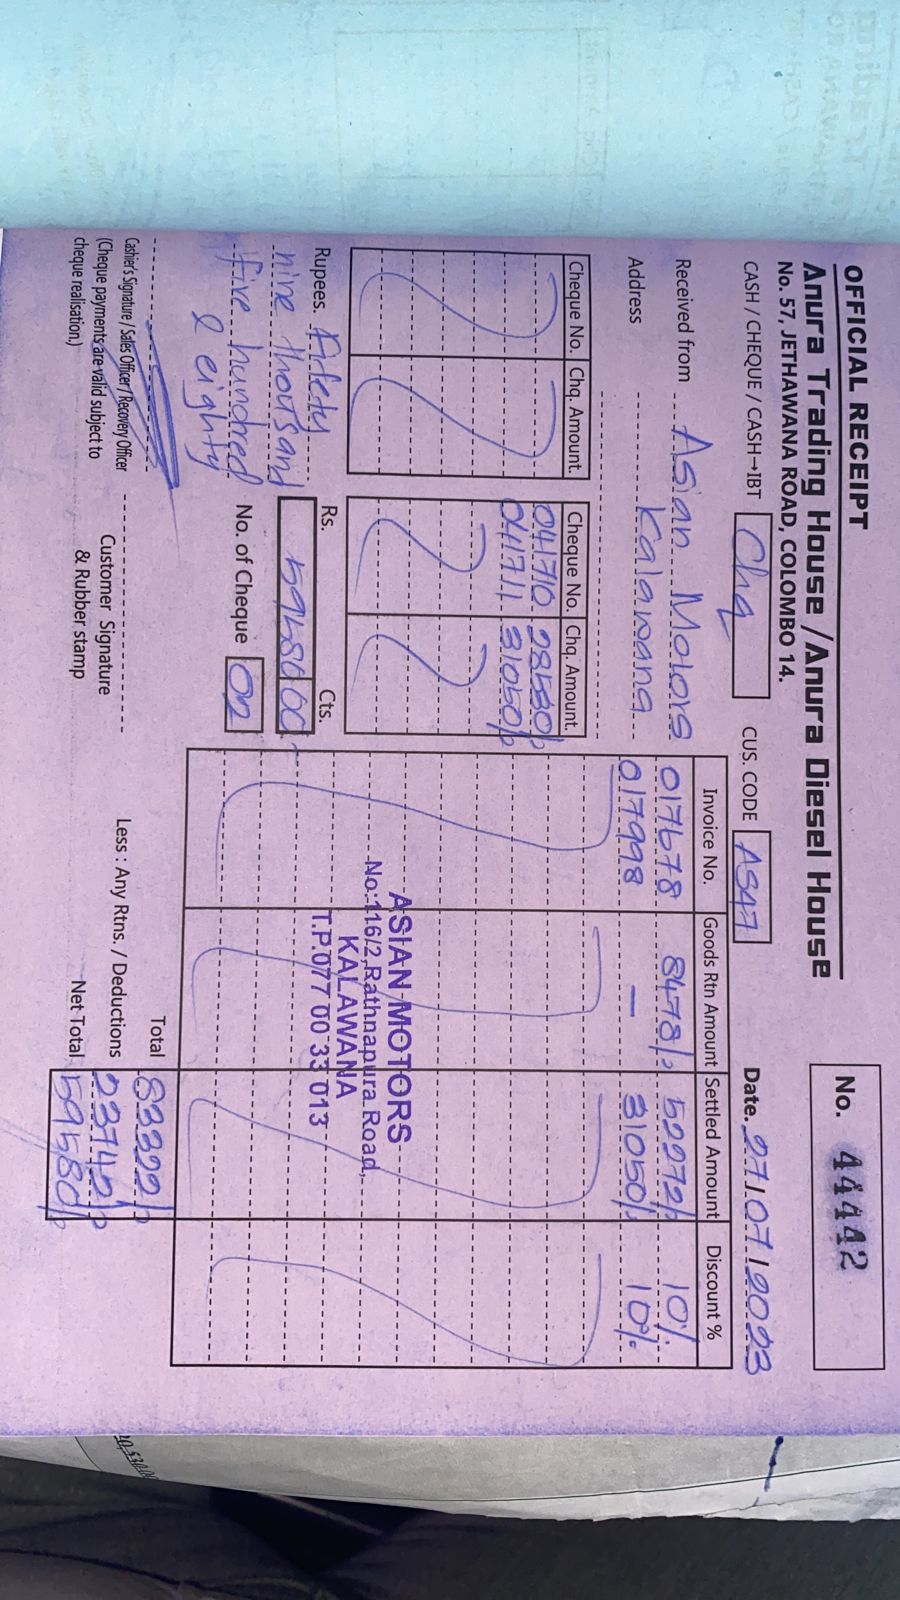 OFFICIAL RECEIPT
No. 44442
Anura Trading House /Anura Diesel House
No. 57, JETHAWANA ROAD, COLOMBO 14.
CASH / CHEQUE / CASH→IBT Chq CUS. CODE AS47 Date. 27/07/2023
Received from Asian Motors
Address Kalawana
Invoice No. Goods Rtn Amount Settled Amount Discount %
017678 8478/= 52272/= 10%
017998 — 31050/= 10%
Cheque No. Chq. Amount. Cheque No. Chq. Amount.
041710 28530/=
041711 31050/=
ASIAN MOTORS
No:116/2,Rathnapura Road,
KALAWANA
T.P.077 00 33 013
Rupees. Fifety
nine thousand
five hundred
& eighty
Rs. Cts.
59580 00
No. of Cheque 02
Total 83322/=
Less : Any Rtns. / Deductions 23742/=
Net Total 59580/=
Cashier's Signature / Sales Officer / Recovery Officer
(Cheque payments are valid subject to
cheque realisation.)
Customer Signature
& Rubber stamp